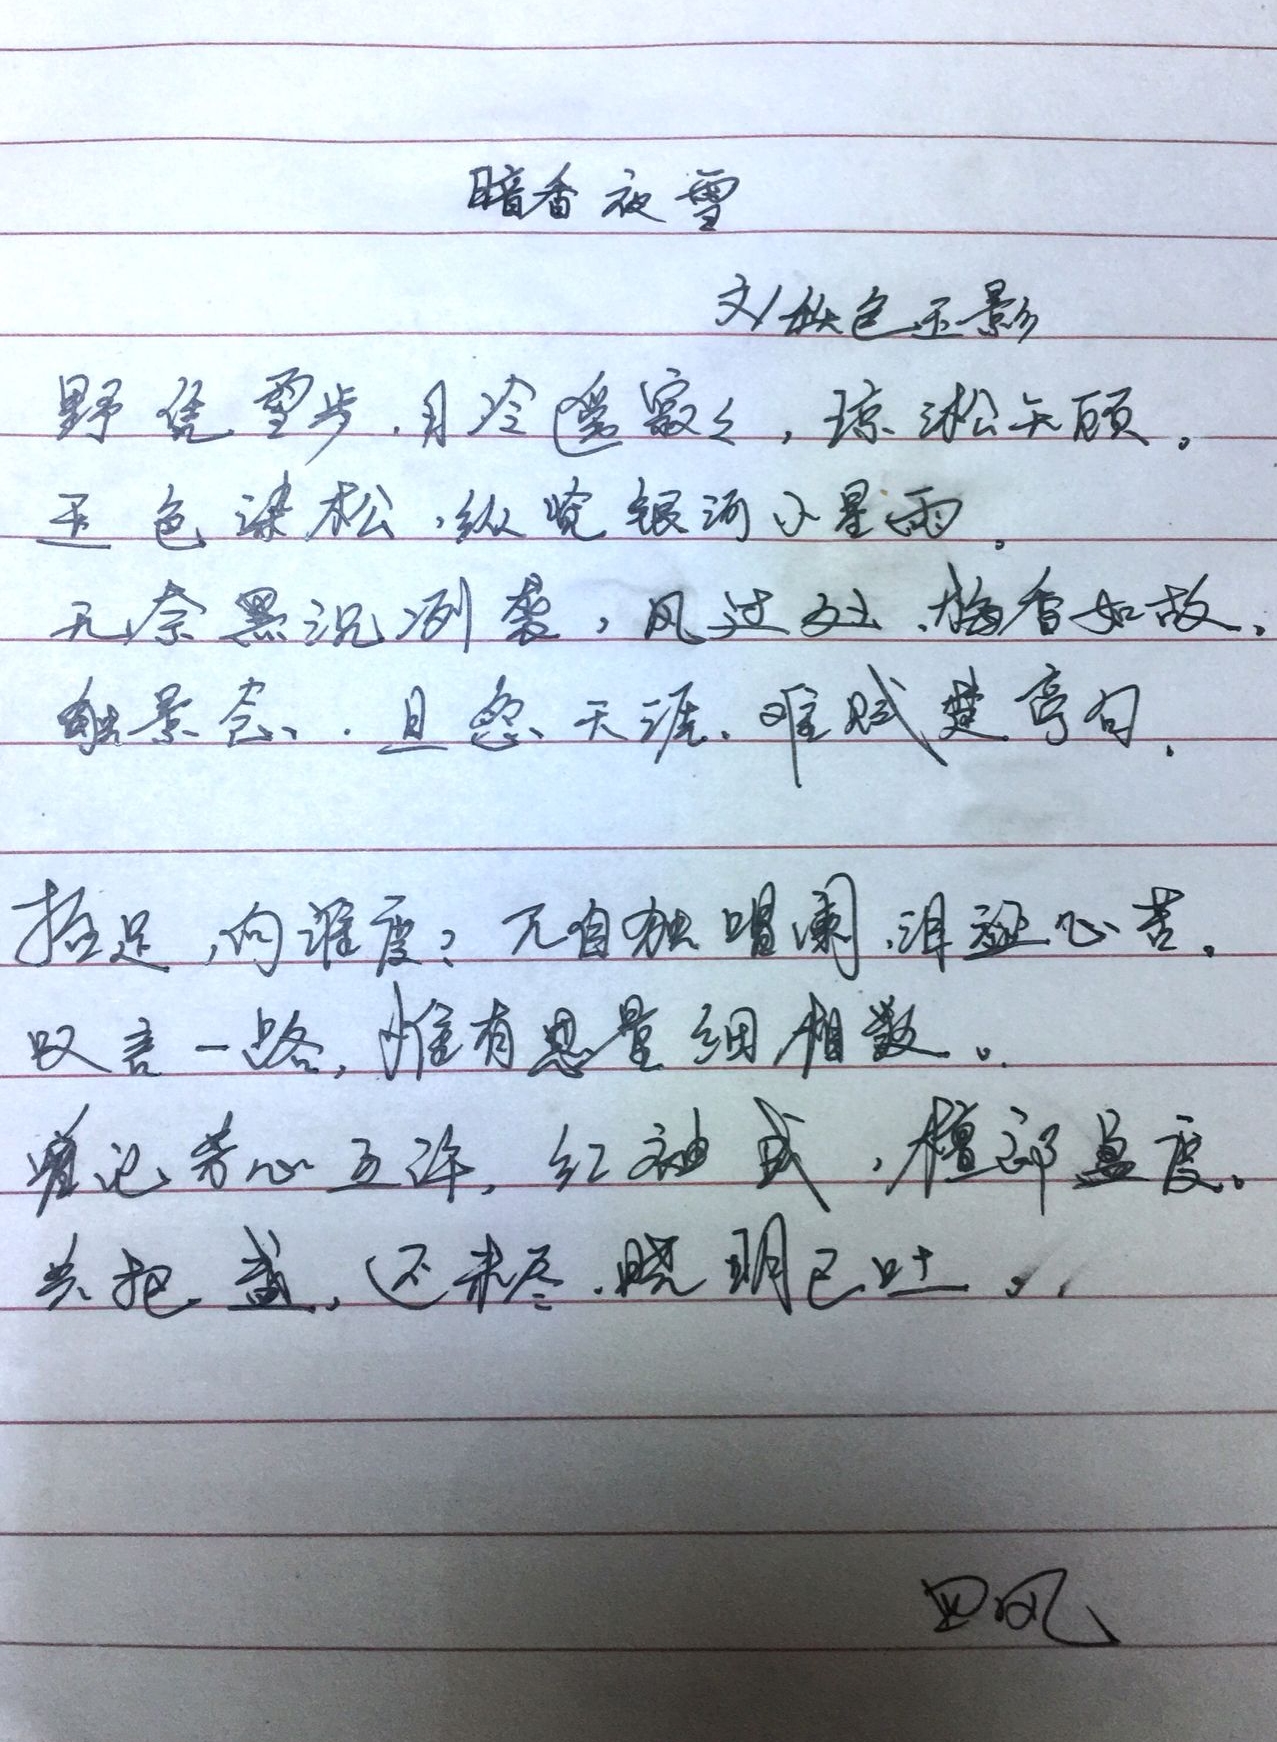 暗香夜雪
文/秋色玉影
野凭雪步，月冷遥寂々，琼淞无顾。
玉色染松，纵览银河小星雨。
无奈黑沉冽袭，风过处，梅香如故。
触景念，且怨天涯，难赋楚亭句。
抬足，向谁度？兀自独唱阑，泪证心苦。
叹言一路，惟有思量细相数。
曾记芳心互许，红袖盛，檀郎盈度。
共把盏，还未尽，晓明已吐。
四风